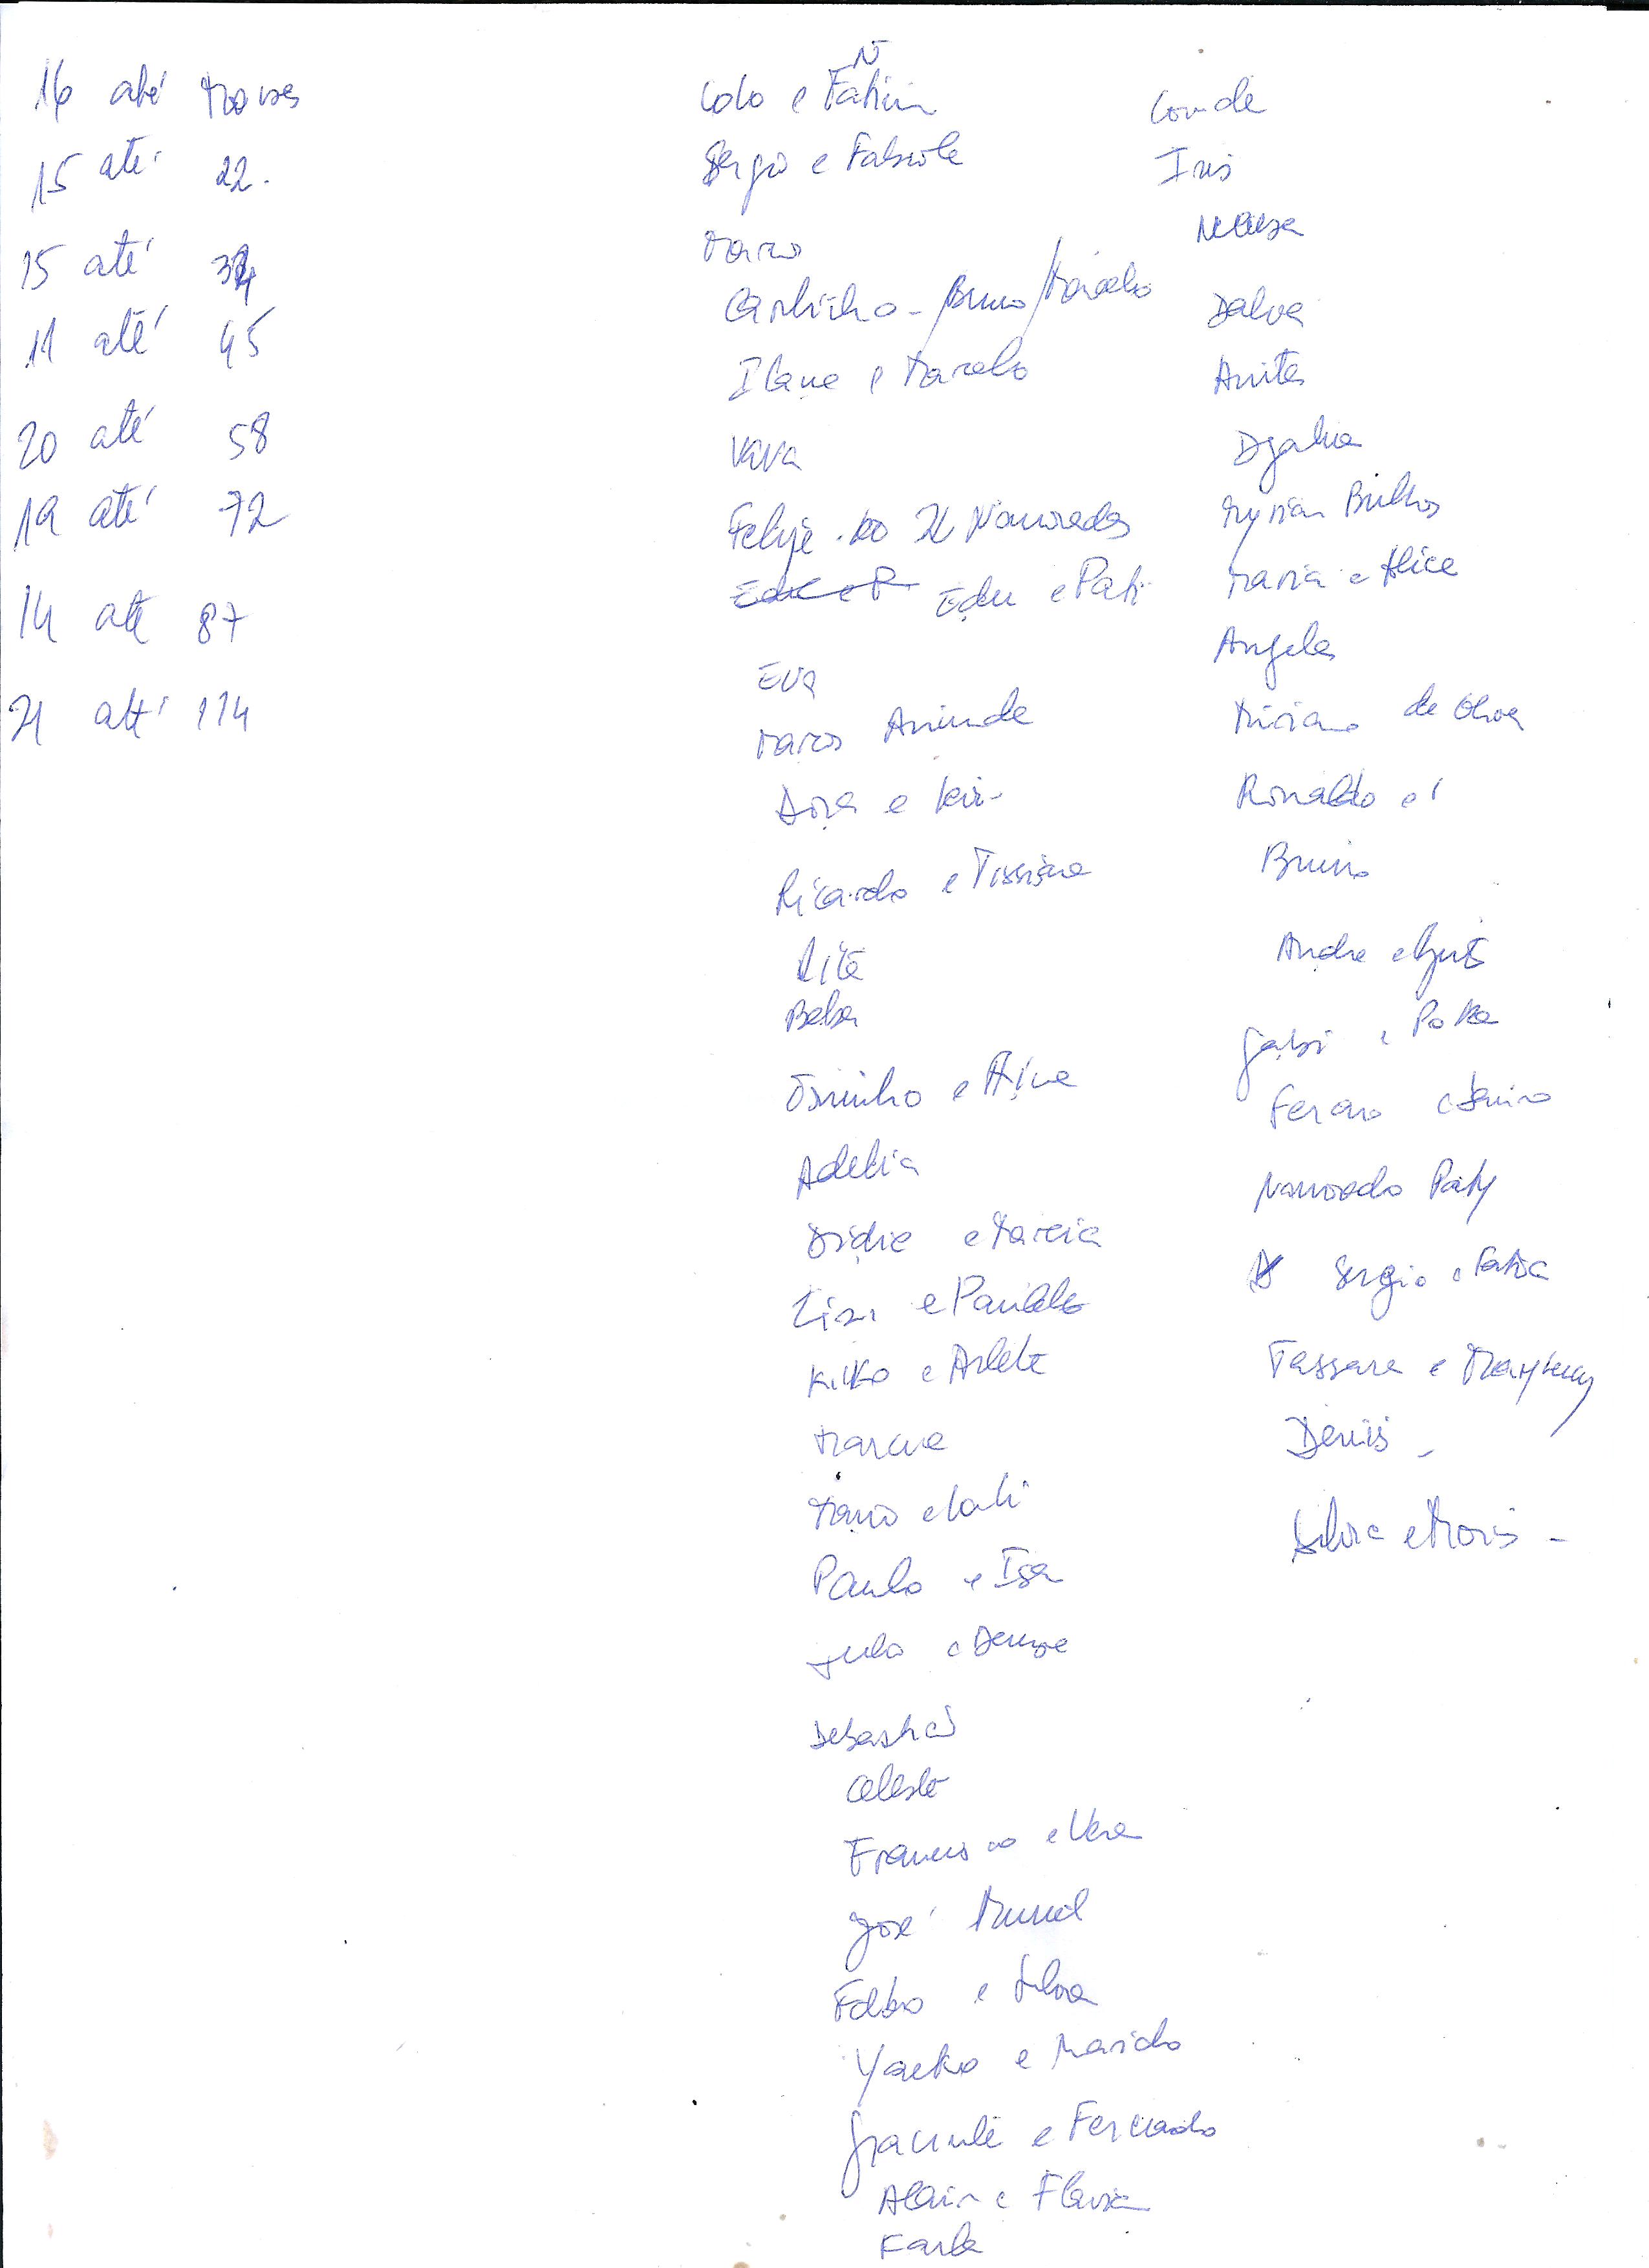 16 até
15 até 22.
15 até 34
11 até 45
20 até 58
19 até 72
14 até 87
21 até 114
Lolo e Fatim
Sergio e Fabiole
Marcos
Carlinho - Bruno / Marcelo
Ilane e Marcelo
Vava
Felipe Namorada
Edu e Pati
Eva
Marcos
Dora e
Ricardo e Tissiane
Rita
Beba
Osninho e Aline
Adelia
Didie e Marcia
e Paulo
Kiko e Arlete
Marcia
Mario e Kati
Paulo e Isa
Julio e Denize
Sebastião
Celeste
Francisco e Vera
José Manuel
Fabio e Silvia
Yaeko e Marido
Graciule e Fernado
Alair e Flavia
Karla
Conde
Iris
Neusa
Dalva
Anita
Djalma
Myrian Brilhos
Maria e Alice
Angela
Miriam de Oliva
Ronaldo e
Bruno
Andre e
Gabi e
Namorado Paty
Sergio e
Tassara e
Denis -
Silvia e Moris -